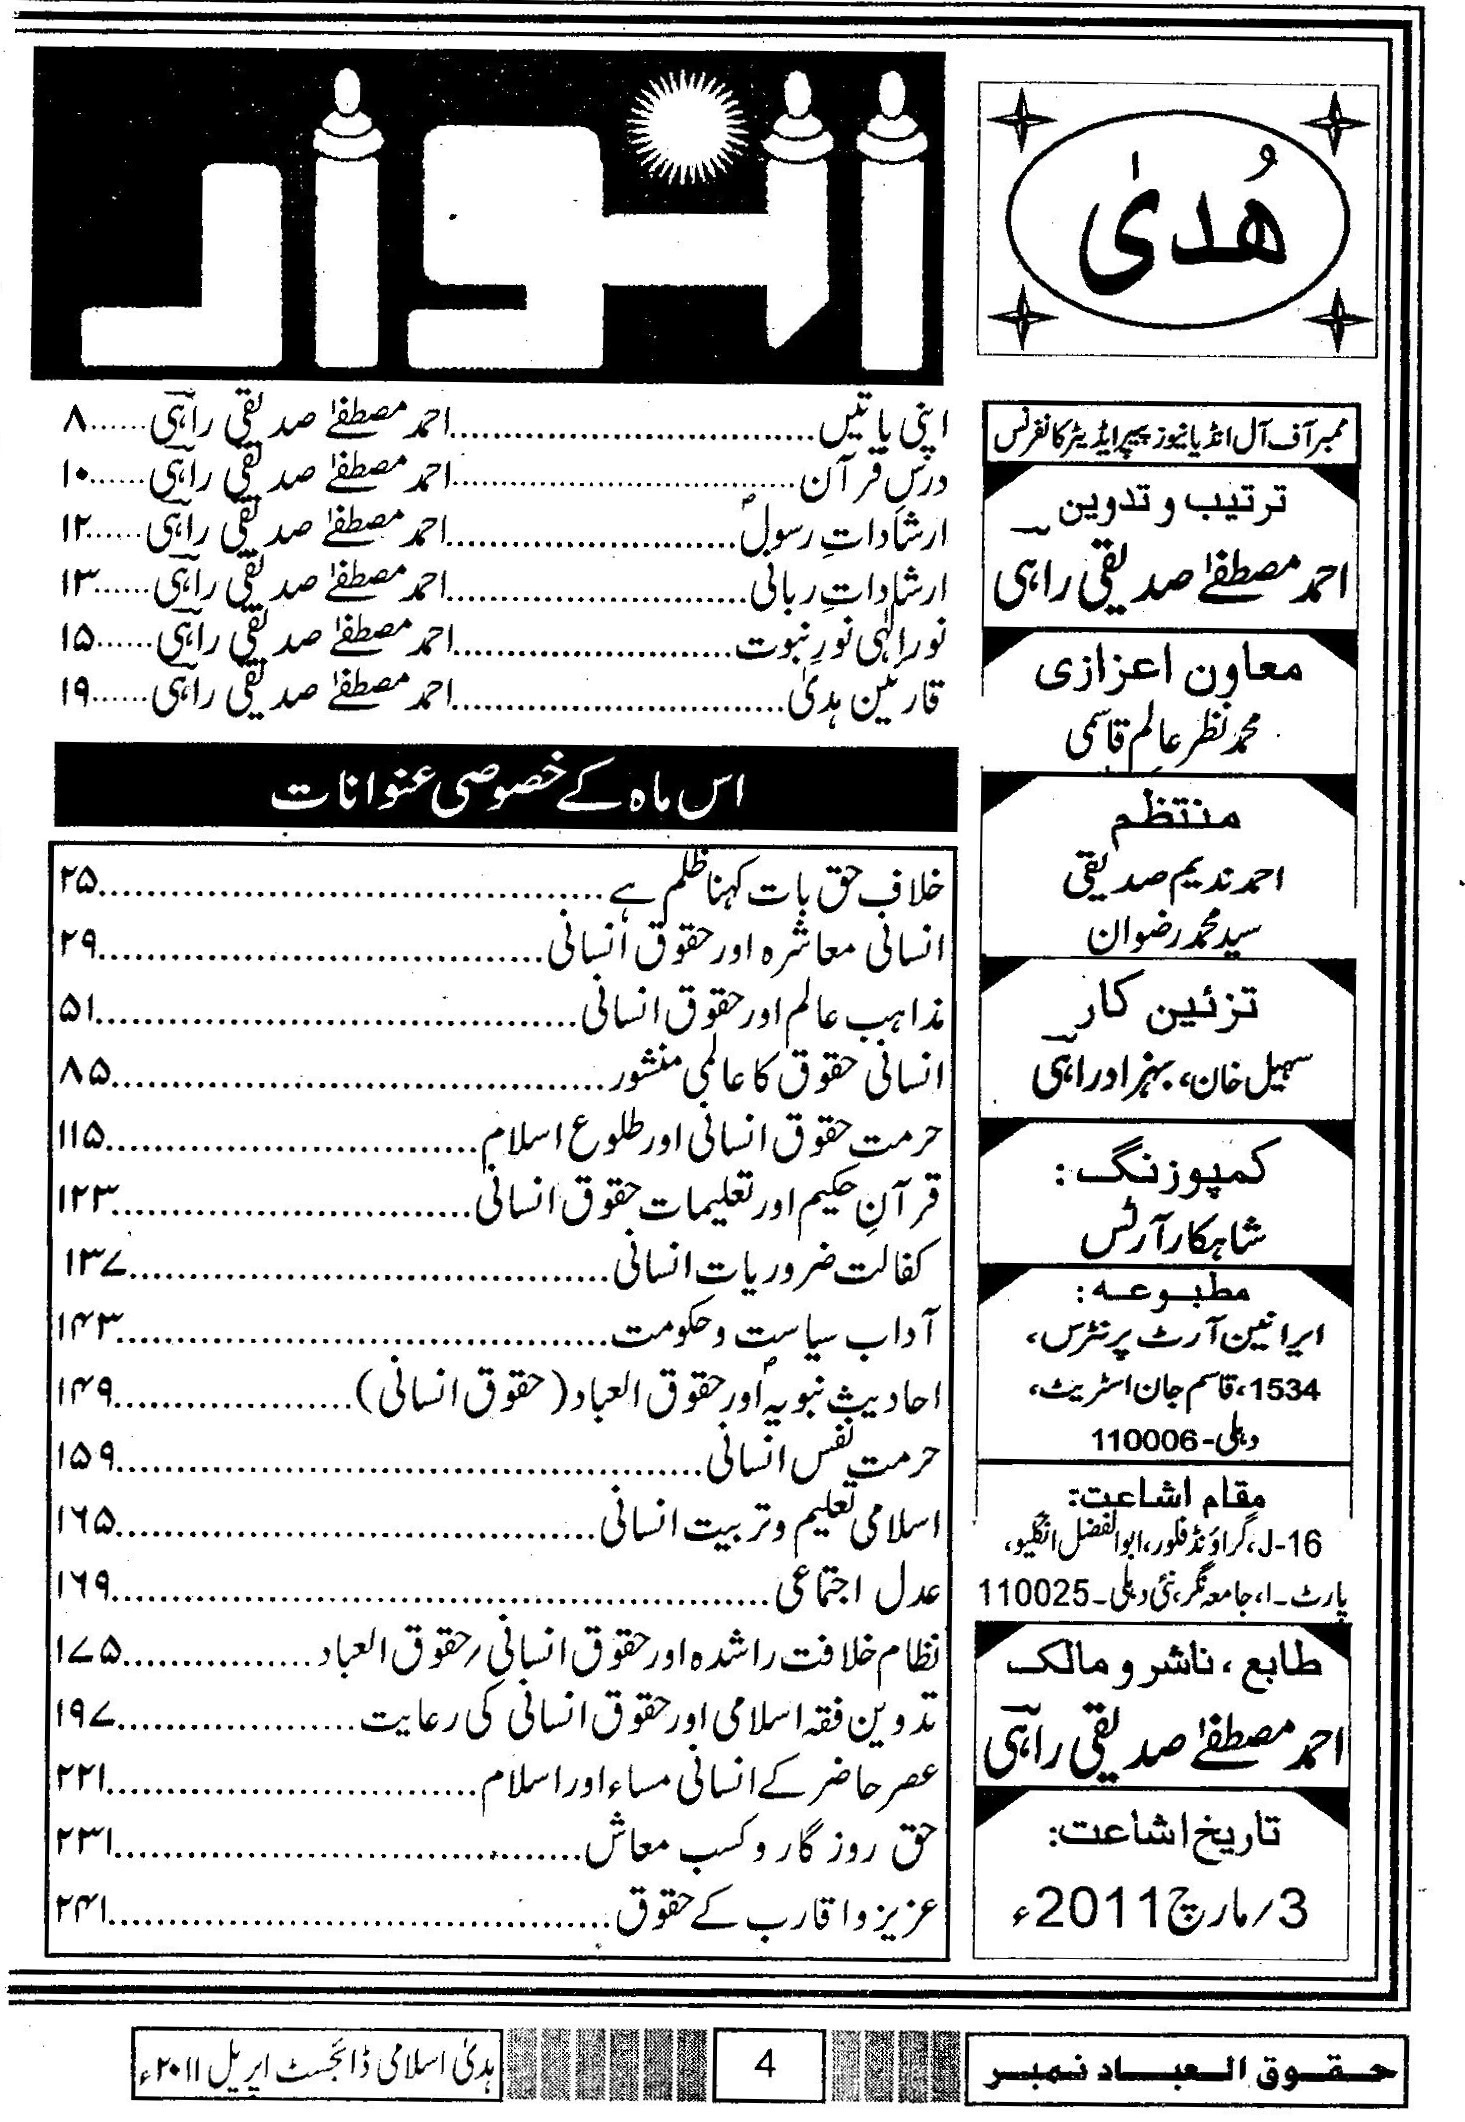 ھُدیٰ
انوار
ممبر آف آل انڈیا نیوز پیپر ایڈیٹر کانفرنس
ترتیب و تدوین
احمد مصطفیٰ صدیقی راہی
معاون اعزازی
محمد نظر عالم قاسمی
منتظم
احمد ندیم صدیقی
سید محمد رضوان
تزئین کار
سہیل خان، بہزاد راہی
کمپوزنگ:
شاہکار آرٹس
مطبوعہ:
ایرانین آرٹ پرنٹرس،
1534، قاسم جان اسٹریٹ،
دہلی-110006
مقام اشاعت:
J-16، گراؤنڈ فلور، ابوالفضل انکلیو،
پارٹ-۱، جامعہ نگر، نئی دہلی-110025
طابع، ناشر و مالک
احمد مصطفیٰ صدیقی راہی
تاریخ اشاعت:
3/مارچ 2011ء
اپنی باتیں..............................احمد مصطفیٰ صدیقی راہی......۸
درسِ قرآن..............................احمد مصطفیٰ صدیقی راہی......۱۰
ارشاداتِ رسولؐ..............................احمد مصطفیٰ صدیقی راہی......۱۲
ارشاداتِ ربانی..............................احمد مصطفیٰ صدیقی راہی......۱۳
نورِ الٰہی نورِ نبوت..............................احمد مصطفیٰ صدیقی راہی......۱۵
قارئین ہدیٰ..............................احمد مصطفیٰ صدیقی راہی......۱۹
اس ماہ کے خصوصی عنوانات
خلافِ حق بات کہنا ظلم ہے..............................۲۵
انسانی معاشرہ اور حقوق انسانی..............................۲۹
مذاہب عالم اور حقوق انسانی..............................۵۱
انسانی حقوق کا عالمی منشور..............................۸۵
حرمتِ حقوق انسانی اور طلوع اسلام..............................۱۱۵
قرآنِ حکیم اور تعلیمات حقوق انسانی..............................۱۲۳
کفالت ضروریات انسانی..............................۱۳۷
آداب سیاست و حکومت..............................۱۴۳
احادیث نبویہؐ اور حقوق العباد (حقوق انسانی)..............................۱۴۹
حرمت نفس انسانی..............................۱۵۹
اسلامی تعلیم و تربیت انسانی..............................۱۶۵
عدل اجتماعی..............................۱۶۹
نظام خلافت راشدہ اور حقوق انسانی/حقوق العباد..............................۱۷۵
تدوین فقہ اسلامی اور حقوق انسانی کی رعایت..............................۱۹۷
عصر حاضر کے انسانی مساء اور اسلام..............................۲۲۱
حق روزگار و کسب معاش..............................۲۳۱
عزیز و اقارب کے حقوق..............................۲۴۱
حقوق العباد نمبر
4
ہدیٰ اسلامی ڈائجسٹ اپریل ۲۰۱۱ء